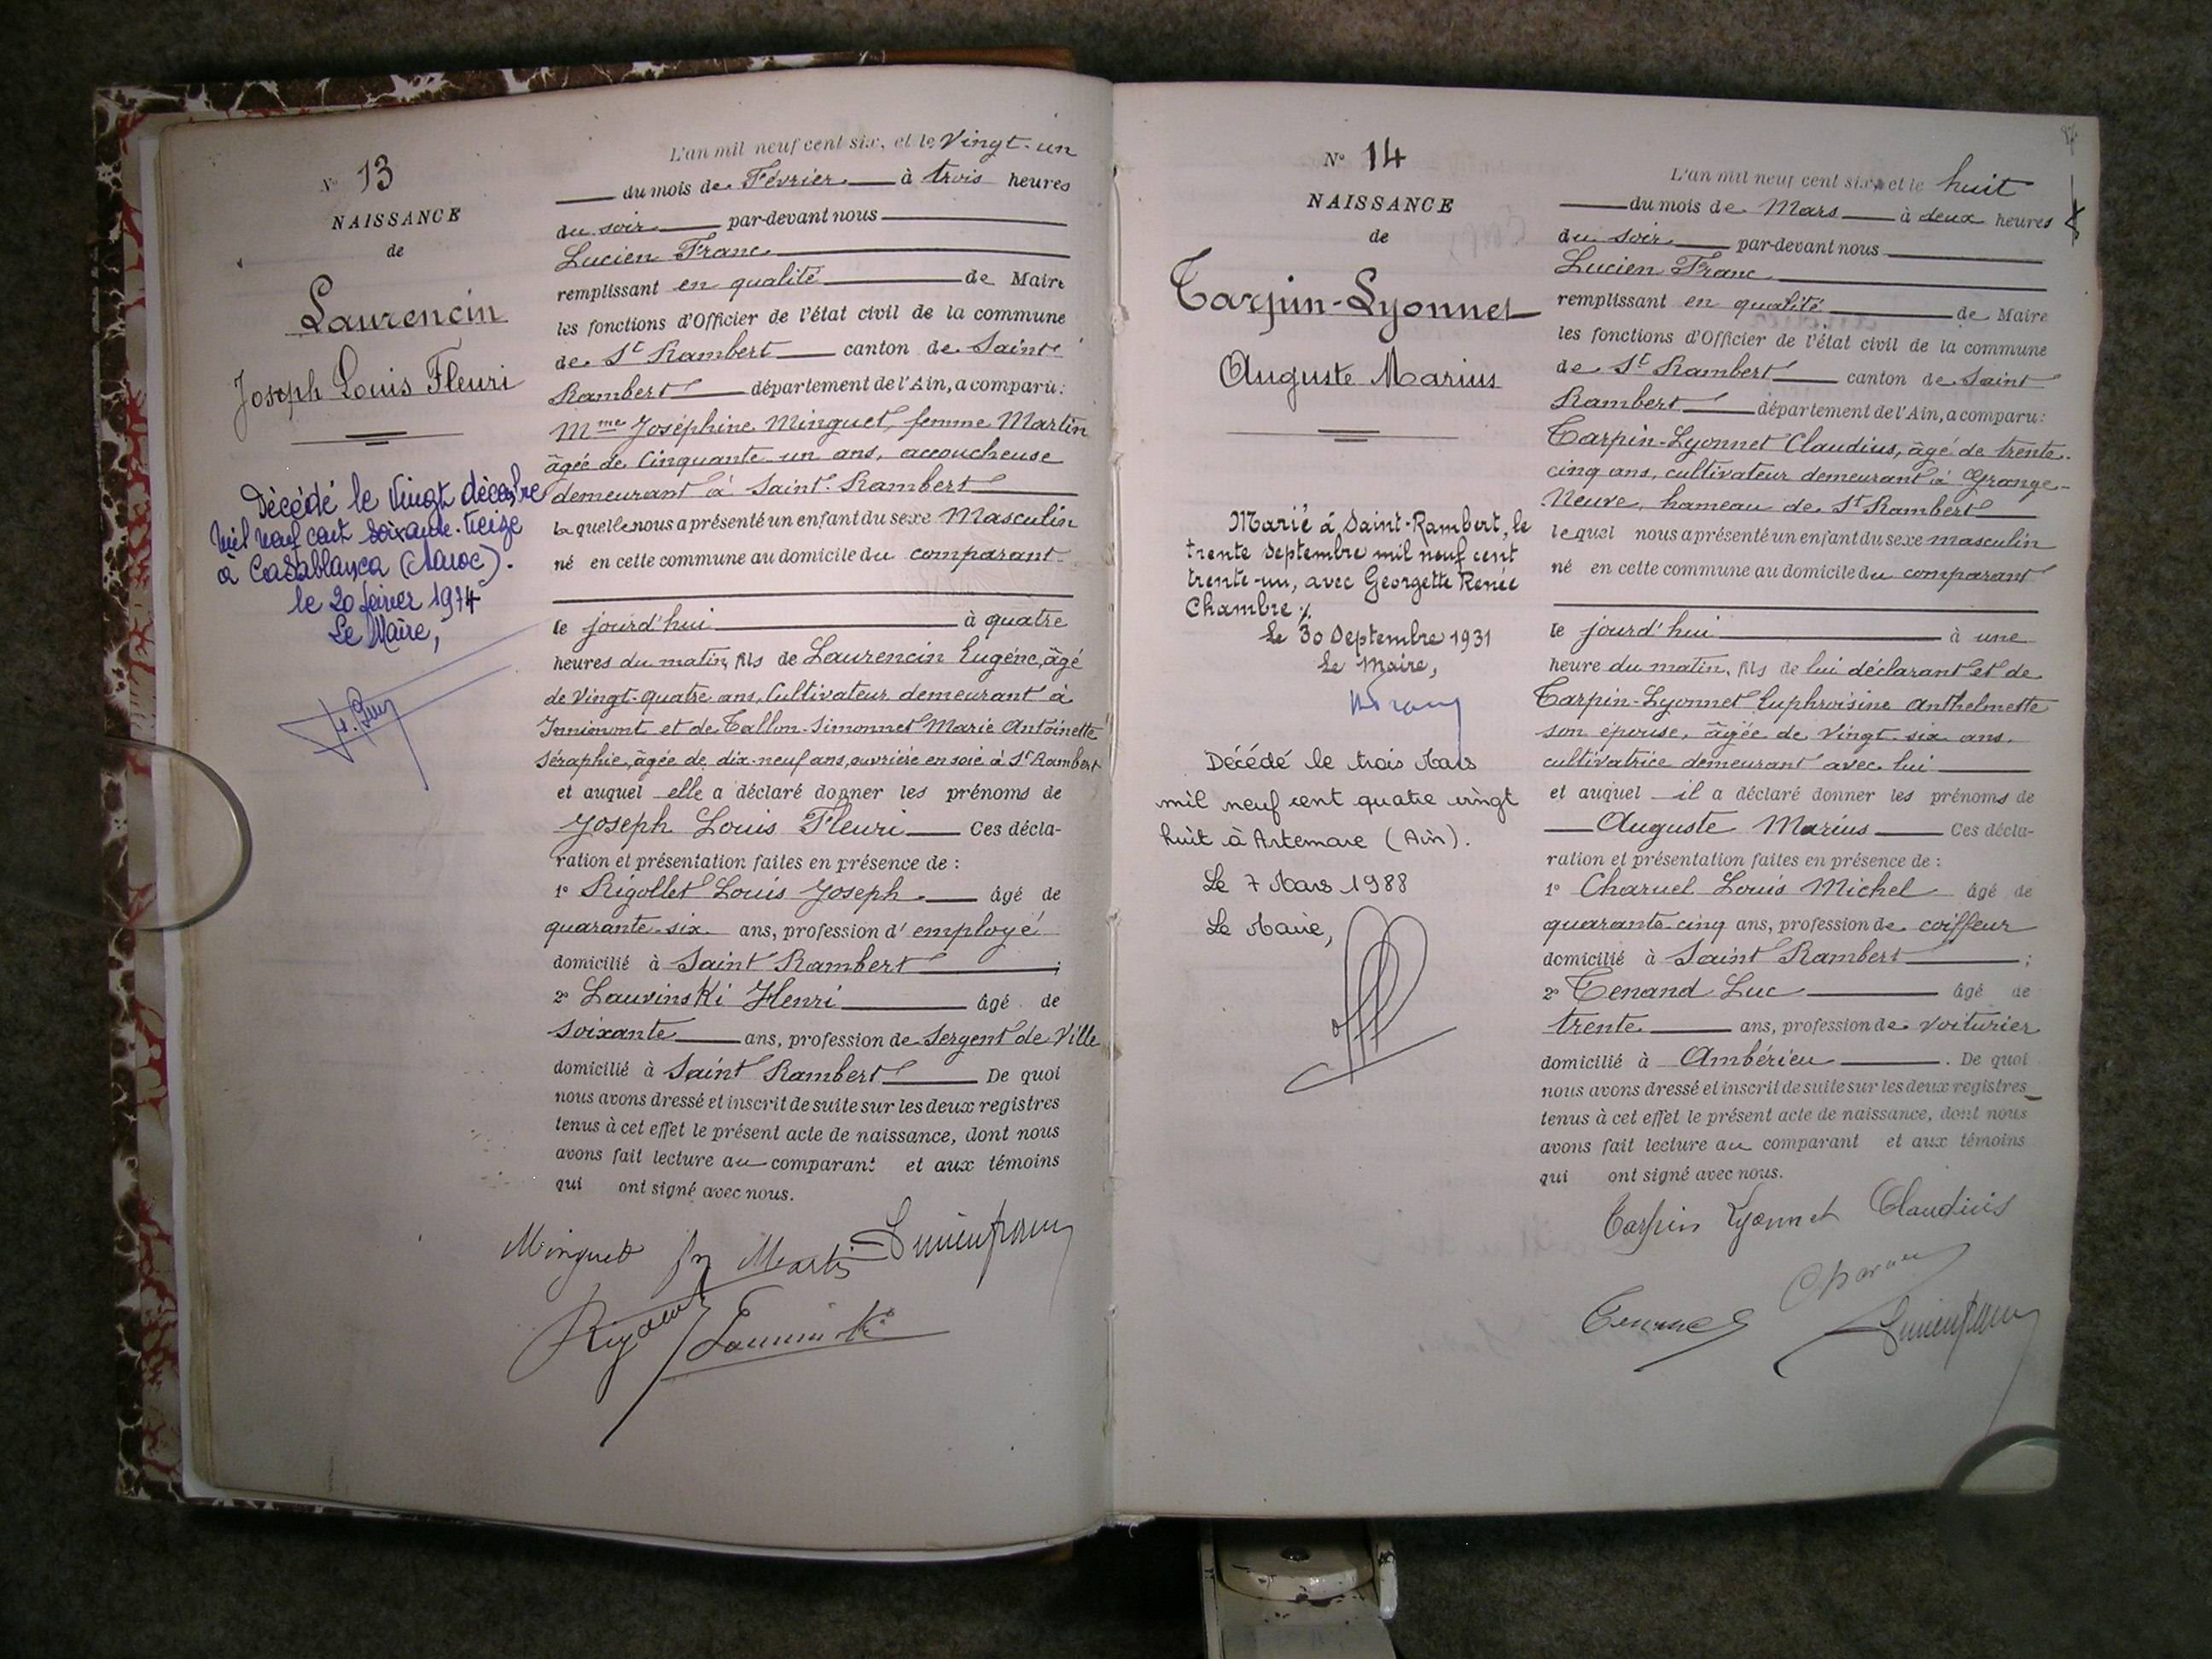 N° 13
NAISSANCE
de
Laurencin
Joseph Louis Fleuri
Décédé le vingt décembre
mil neuf cent soixante-treize
à Casablanca (Maroc).
le 20 février 1974
Le Maire,
L'an mil neuf cent six, et le Vingt-un
du mois de Février à trois heures
du soir par-devant nous
Lucien Franc
remplissant en qualité de Maire
les fonctions d'Officier de l'état civil de la commune
de St Rambert canton de Saint
Rambert département de l'Ain, a comparu:
Mme Joséphine Minguet, femme Martin
âgée de Cinquante-un ans, accoucheuse
demeurant à Saint-Rambert
laquelle nous a présenté un enfant du sexe Masculin
né en cette commune au domicile du comparant
le jourd'hui à quatre
heures du matin, fils de Laurencin Eugène, âgé
de Vingt-quatre ans, Cultivateur demeurant à
Innimont et de Tallon-Simonnet Marie Antoinette
Séraphie, âgée de dix-neuf ans, ouvrière en soie à St Rambert
et auquel elle a déclaré donner les prénoms de
Joseph Louis Fleuri Ces décla-
ration et présentation faites en présence de :
1° Rigollet Louis Joseph âgé de
quarante-six ans, profession d'employé
domicilié à Saint Rambert ;
2° Lauvinski Henri âgé de
soixante ans, profession de Sergent de Ville
domicilié à Saint Rambert De quoi
nous avons dressé et inscrit de suite sur les deux registres
tenus à cet effet le présent acte de naissance, dont nous
avons fait lecture au comparant et aux témoins
qui ont signé avec nous.
Minguet fe Martin Lucien Franc
N° 14
NAISSANCE
de
Tarpin-Lyonnet
Auguste Marius
Marié à Saint-Rambert, le
trente septembre mil neuf cent
trente-un, avec Georgette Renée
Chambre ./.
Le 30 Septembre 1931
Le Maire,
Décédé le trois Mars
mil neuf cent quatre vingt
huit à Artemare (Ain).
Le 7 Mars 1988
Le Maire,
L'an mil neuf cent six, et le huit
du mois de Mars à deux heures
du soir par-devant nous
Lucien Franc
remplissant en qualité de Maire
les fonctions d'Officier de l'état civil de la commune
de St Rambert canton de Saint
Rambert département de l'Ain, a comparu:
Tarpin-Lyonnet Claudius, âgé de trente-
cinq ans, cultivateur demeurant à Grange-
Neuve, hameau de St Rambert
lequel nous a présenté un enfant du sexe masculin
né en cette commune au domicile du comparant
le jourd'hui à une
heure du matin, fils de lui déclarant et de
Tarpin-Lyonnet Euphroisine Anthelmette
son épouse, âgée de Vingt-six ans,
cultivatrice demeurant avec lui
et auquel il a déclaré donner les prénoms de
Auguste Marius Ces décla-
ration et présentation faites en présence de :
1° Charuel Louis Michel âgé de
quarante-cinq ans, profession de coiffeur
domicilié à Saint Rambert ;
2° Tenand Luc âgé de
trente ans, profession de voiturier
domicilié à Ambérieu. De quoi
nous avons dressé et inscrit de suite sur les deux registres
tenus à cet effet le présent acte de naissance, dont nous
avons fait lecture au comparant et aux témoins
qui ont signé avec nous.
Tarpin Lyonnet Claudius